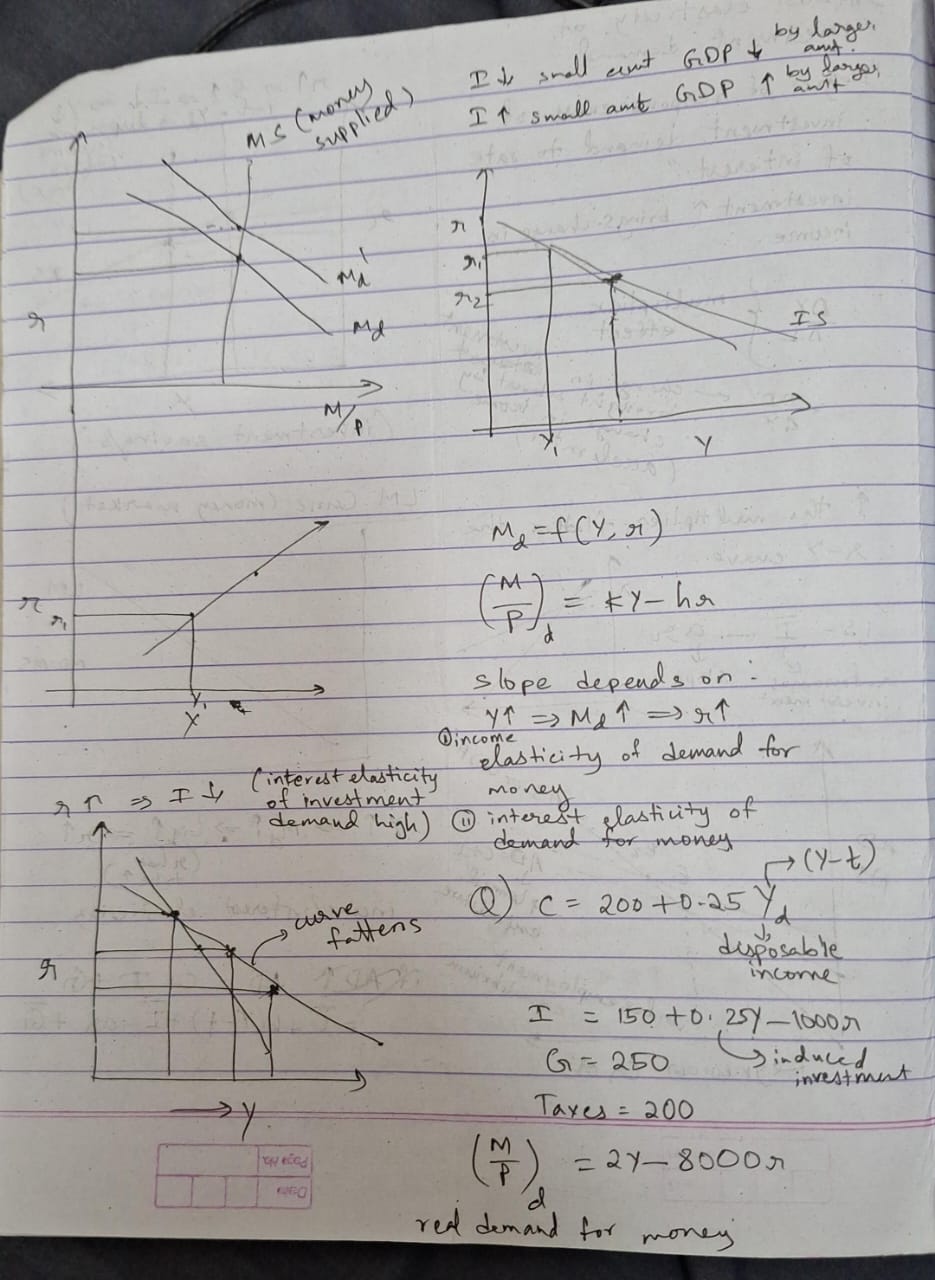 I↓ small amt GDP ↓ by larger amt.
I↑ small amt GDP ↑ by larger amt
MS (money supplied)
Md'
Md
r
M/P
r
r₁
r₂
IS
Y₁
Y
Md = f(Y, r)
(M/P)d = kY – hr
r
r₁
Y₁
Y
slope depends on :
Y↑ ⇒ Md ↑ ⇒ r↑
① income
elasticity of demand for
money
② interest elasticity of
demand for money
r↑ ⇒ I↓ (interest elasticity
of investment
demand high)
curve
fattens
r
→ Y
Q) C = 200 + 0.25 Yd → (Y–t)
disposable
income
I = 150 + 0.25Y – 1000r
induced
investment
G = 250
Taxes = 200
(M/P)d = 2Y – 8000r
real demand for money
Page No.
Date